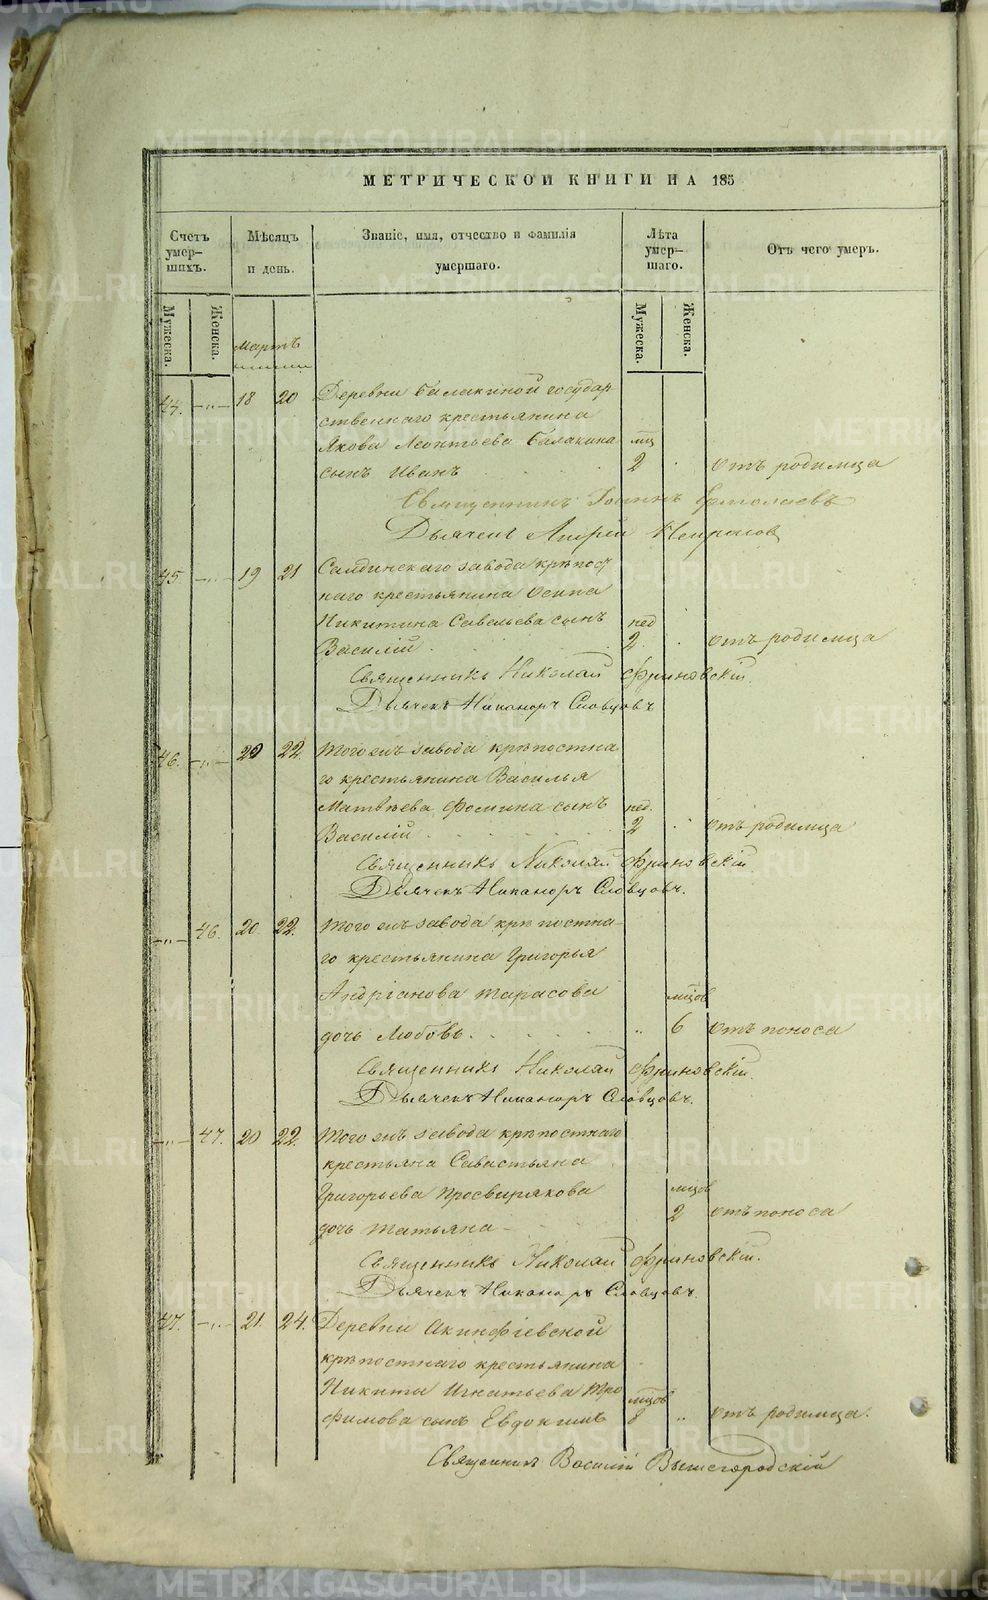 МЕТРИЧЕСКОЙ КНИГИ НА 185
Счетъ умер-шихъ. Мѣсяцъ и день. Званіе, имя, отчество и фамилія умершаго. Лѣта умер-шаго. Отъ чего умеръ.
Мужеска. Женска. Мартъ Мужеска. Женска.
44. —„— 18 20 Деревни Балакиной государ-
ственнаго крестьянина
Якова Леонтьева Балакина мц
сынъ Иванъ 2 отъ родимца
Священникъ Іоаннъ Ермолаевъ
Дьячекъ Андрей
45 —„— 19 21 Салдинскаго завода крѣпост
наго крестьянина Осипа
Никитина Савельева сынъ нед
Василій 2. отъ родимца
Священникъ Николай Фриновскій.
Дьячекъ Никаноръ Словцовъ
46. —„— 20 22. Тогожъ завода крѣпостна
го крестьянина Василья
Матвѣева Фомина сынъ нед.
Василій 2 отъ родимца
Священникъ Николай Фриновскій
Дьячекъ Никаноръ Словцовъ.
—„— 46. 20 22. Тогожъ завода крѣпостна-
го крестьянина Григорья
Андріанова Тарасова мцов
дочь Любовь. „ 6 отъ поноса
Священникъ Николай Фриновскій.
Дьячекъ Никаноръ Словцовъ.
—„— 47. 20 22. Тогожъ завода крѣпостнаго
крестьяна Савастьяна
Григорьева Просвирякова мцов
дочь Татьяна 2 отъ поноса
Священникъ Николай Фриновскій.
Дьячекъ Никаноръ Словцовъ.
47. —„— 21. 24. Деревни Акинфіевской
крѣпостнаго крестьянина
Никиты Игнатьева Тро мцов
фимова сынъ Евдокимъ 8 „ отъ родимца.
Священникъ Василій Вышегородскій
METRIKI.GASO-URAL.RU